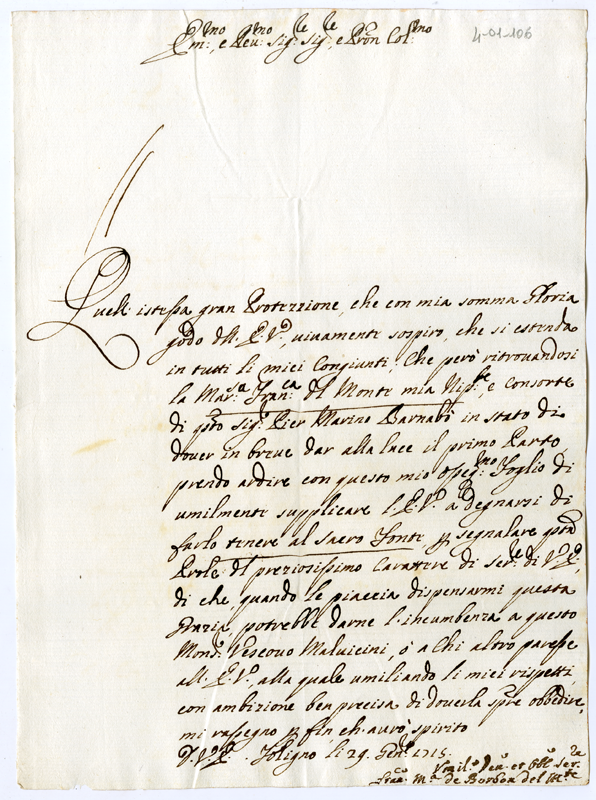 4-01-106
Em:mo, e Reu:mo Sig:re Sig:re, e Pron Col:mo
Quell' istessa gran Protezzione, che con mia somma Gloria
godo dell' E.V., uiuamente sospiro, che si estenda
in tutti li miei Congiunti; Che però ritrouandosi
la Mar:sa Fran:ca del Monte mia Nip:te, e Consorte
di qsto Sig: Pier Marino Barnabò in stato di
douer in breue dar alla luce il primo Parto,
prendo ardire con questo mio osseq:mo Foglio di
umilmente supplicare l'E.V. a degnarsi di
farlo tenere al Sacro Fonte p segnalare qsta
Prole del preziosissimo Carattere di Ser:le di V.E.,
di che, quando le piaccia dispensarmi questa
Grazia, potrebbe darne l'incumbenza a questo
Mons: Vescouo Maluicini, ò a chi altro paresse
all' E.V., alla quale umiliando li miei rispetti,
con ambizione ben precisa di douerla spre obbedire,
mi rassegno p fin ch' aurò spirito
D.V.E. Foligno li 29. Gen: 1715.
Vmil: Deu: et Obl: Ser:re
Fran: M:a de Borbon del M:te